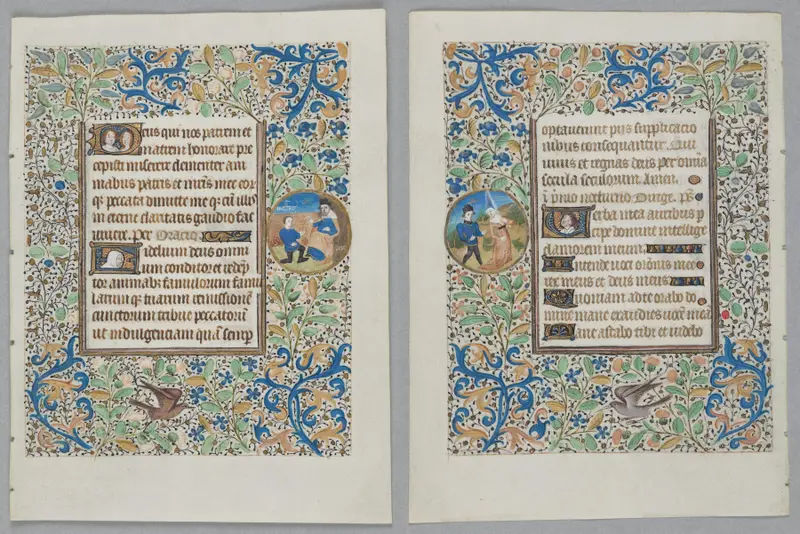 Deus qui nos patrem et
matrem honorare pre
cepisti miserere clementer ani
mabus patris et mris mee eor
q; peccata dimitte me q; cu illis
in eterne claritatis gaudio fac
vivere. Per Oracio
Fidelium deus omni
um conditor et redep
tor animabs famulorum famu
larum q; tuarum remissione
cunctorum tribue peccatoru
ut indulgenciam qua semp
optaverunt pijs supplicacio
nibus consequantur. Qui
vivis et regnas deus per omnia
secula seculorum. Amen.
nocturno Dirige. ps
Verba mea auribus p
cipe domine intellige
clamorem meum
Intende voci oronis mee
rex meus et deus meus
Quoniam ad te orabo do
mine mane exaudies vocem mea
Mane astabo tibi et videbo